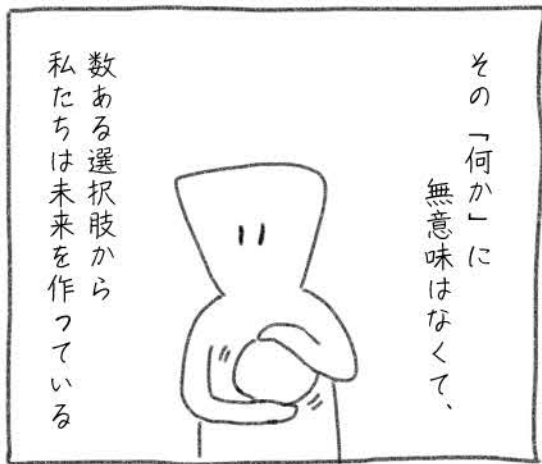 その「何か」に
無意味はなくて、
数ある選択肢から
私たちは未来を作っている